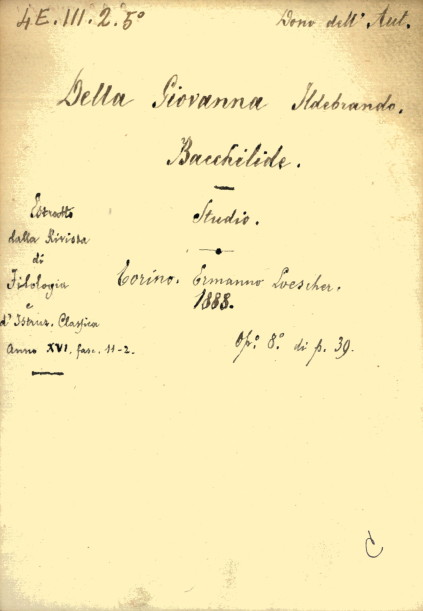 4E.III.2.5º Dono dell' Aut.
Della Giovanna Ildebrando.
Bacchilide.
Studio.
Estratto
dalla Rivista
di
Filologia
e
d'Istruz. Classica
Anno XVI. fasc. 11-2.
Torino. Ermanno Loescher.
1888.
Opº. 8.º di p. 39.
C